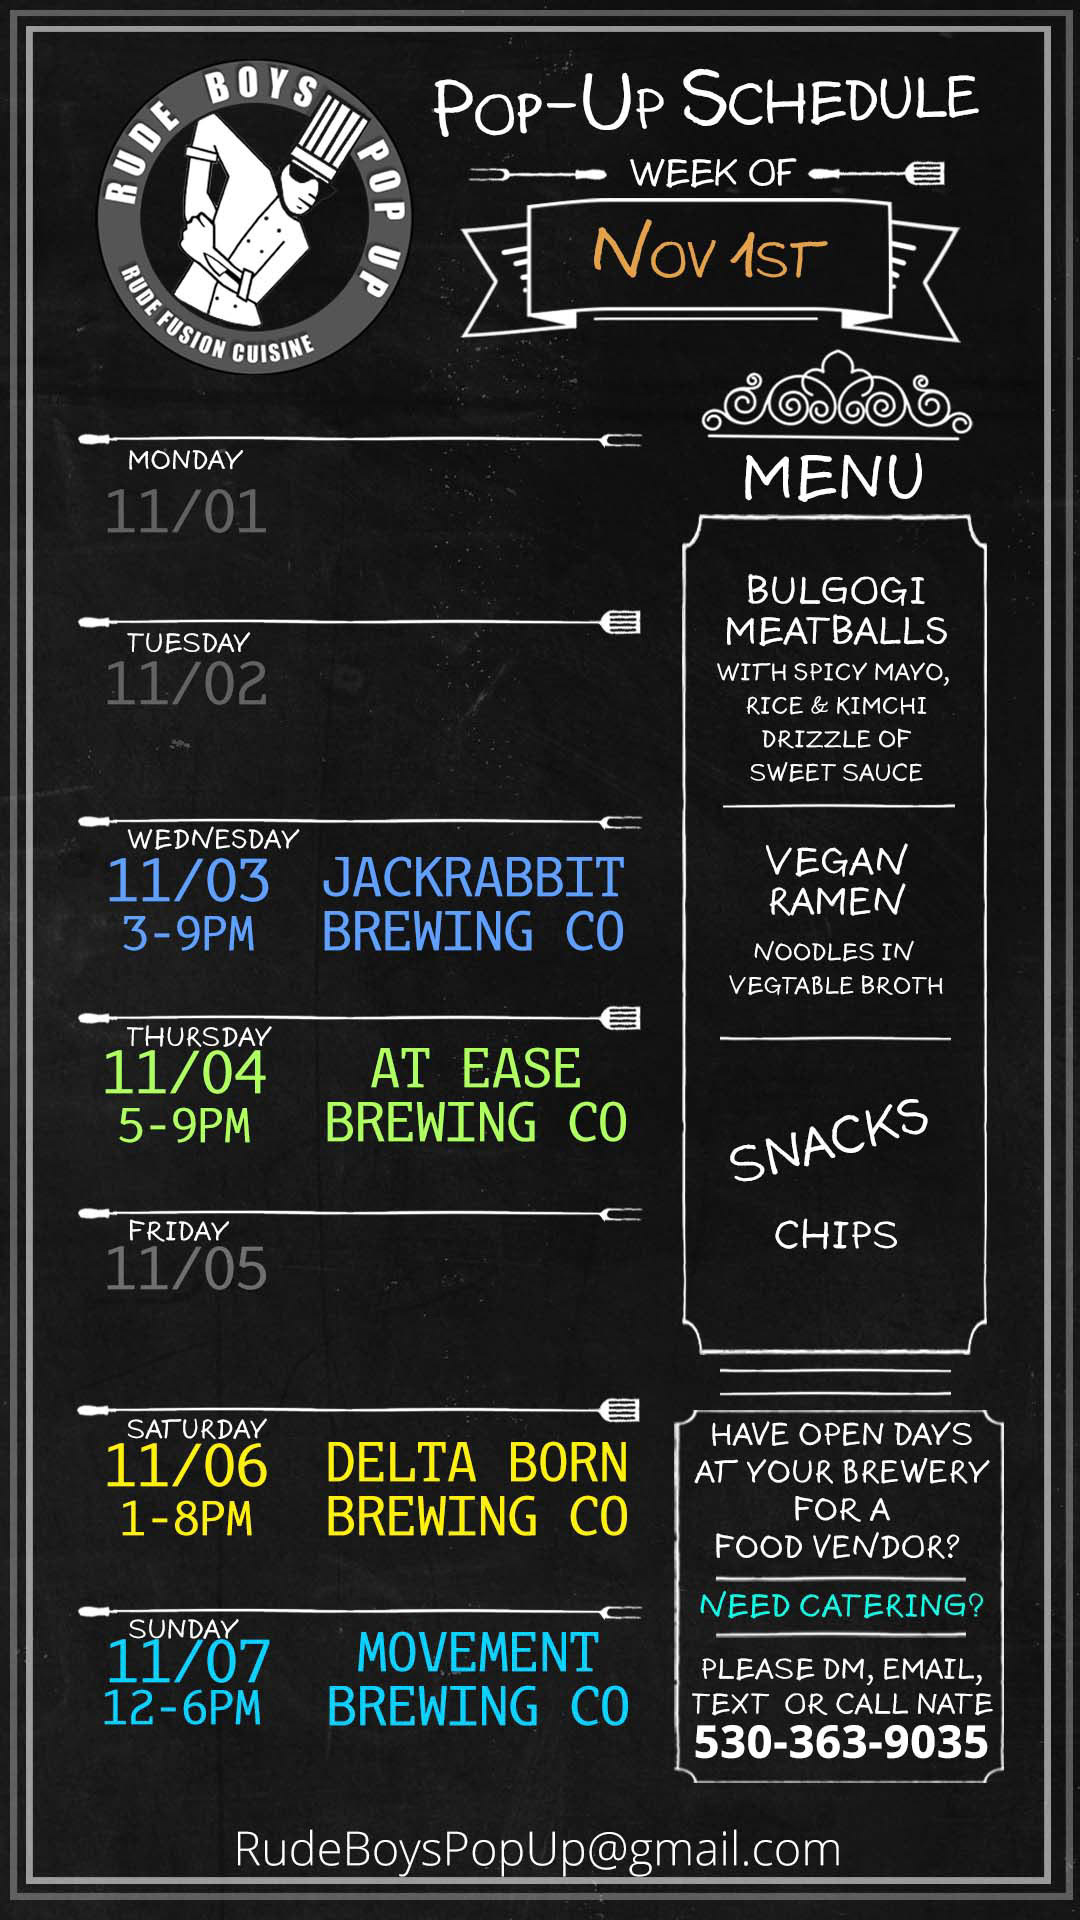 RUDE BOYS POP UP
RUDE FUSION CUISINE
POP-UP SCHEDULE
WEEK OF
NOV 1ST
MONDAY
11/01
TUESDAY
11/02
WEDNESDAY
11/03
3-9PM
JACKRABBIT
BREWING CO
THURSDAY
11/04
5-9PM
AT EASE
BREWING CO
FRIDAY
11/05
SATURDAY
11/06
1-8PM
DELTA BORN
BREWING CO
SUNDAY
11/07
12-6PM
MOVEMENT
BREWING CO
MENU
BULGOGI
MEATBALLS
WITH SPICY MAYO,
RICE & KIMCHI
DRIZZLE OF
SWEET SAUCE
VEGAN
RAMEN
NOODLES IN
VEGTABLE BROTH
SNACKS
CHIPS
HAVE OPEN DAYS
AT YOUR BREWERY
FOR A
FOOD VENDOR?
NEED CATERING?
PLEASE DM, EMAIL,
TEXT OR CALL NATE
530-363-9035
RudeBoysPopUp@gmail.com